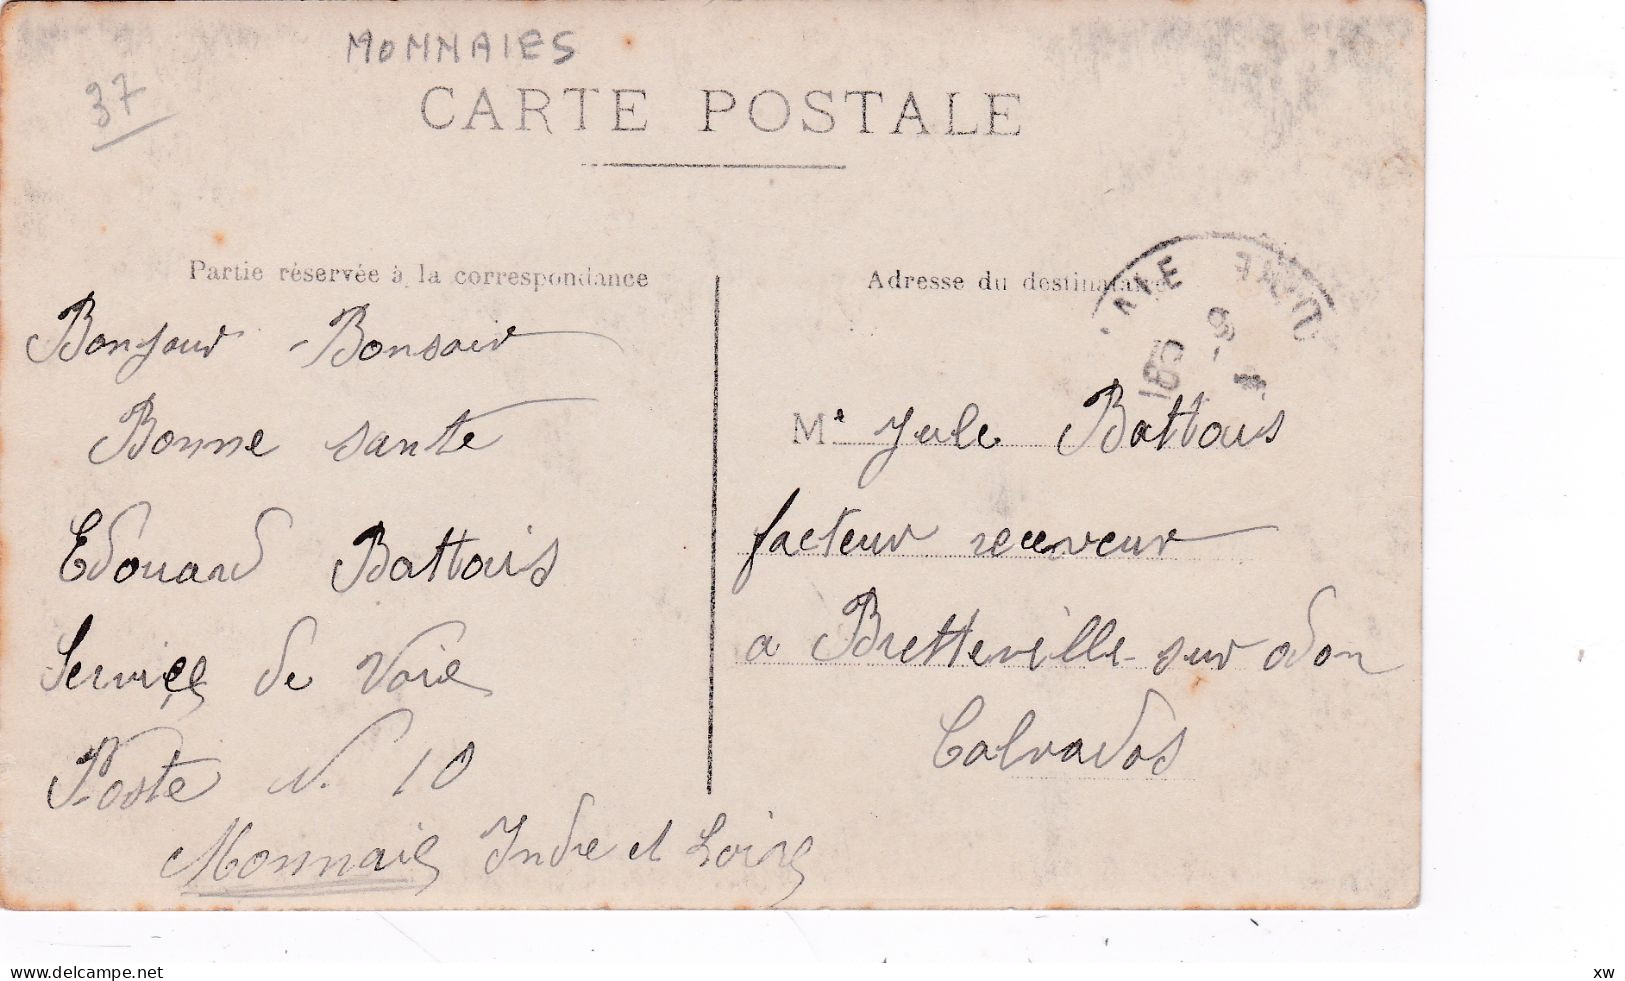 MONNAIES
37
CARTE POSTALE
Partie réservée à la correspondance
Bonjour - Bonsoir
Bonne sante
Edouard Battais
Service de Voie
Poste N. 10
Monnaie Indre et Loire
Adresse du destinataire
Mr Jule Battais
facteur receveur
a Bretteville sur odon
Calvados
www.delcampe.net
xw